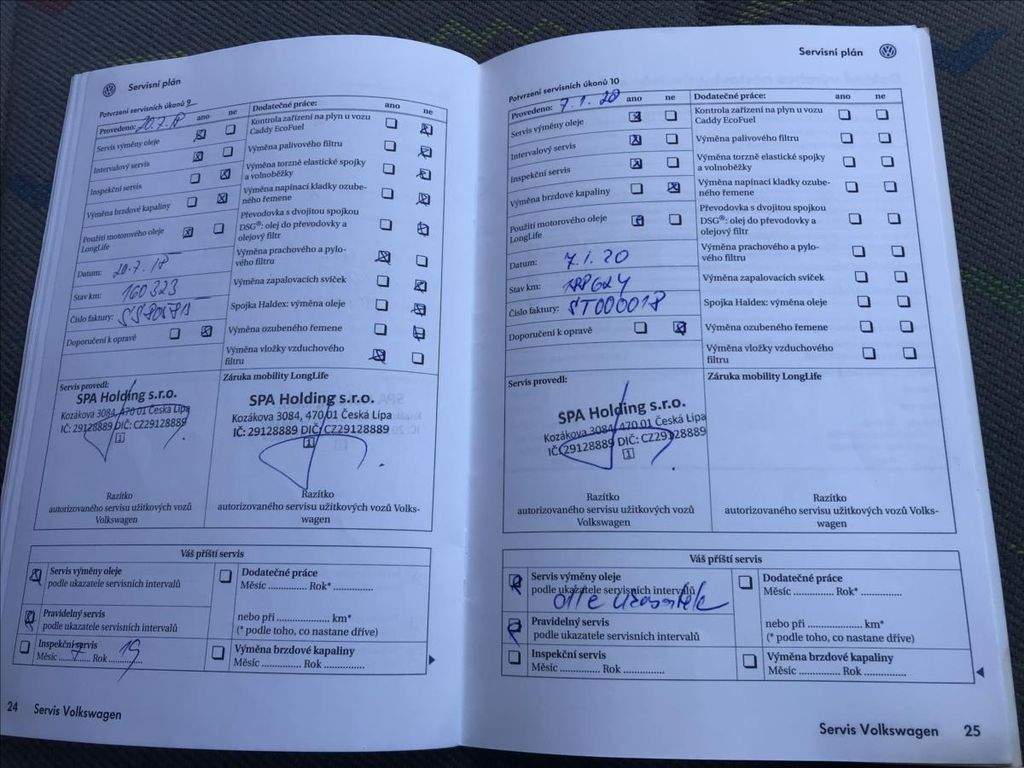 Servisní plán
Potvrzení servisních úkonů 9
Provedeno: 20.7.18 ano ne
Servis výměny oleje
Intervalový servis
Inspekční servis
Výměna brzdové kapaliny
Použití motorového oleje
LongLife
Datum: 20.7.18
Stav km: 160323
Číslo faktury:
Doporučení k opravě
Dodatečné práce: ano ne
Kontrola zařízení na plyn u vozu
Caddy EcoFuel
Výměna palivového filtru
Výměna torzně elastické spojky
a volnoběžky
Výměna napínací kladky ozube-
ného řemene
Převodovka s dvojitou spojkou
DSG®: olej do převodovky a
olejový filtr
Výměna prachového a pylo-
vého filtru
Výměna zapalovacích svíček
Spojka Haldex: výměna oleje
Výměna ozubeného řemene
Výměna vložky vzduchového
filtru
Servis provedl:
SPA Holding s.r.o.
Kozákova 3084, 470 01 Česká Lípa
IČ: 29128889 DIČ: CZ29128889
1
Razítko
autorizovaného servisu užitkových vozů
Volkswagen
Záruka mobility LongLife
SPA Holding s.r.o.
Kozákova 3084, 470 01 Česká Lípa
IČ: 29128889 DIČ: CZ29128889
1
Razítko
autorizovaného servisu užitkových vozů Volks-
wagen
Váš příští servis
Servis výměny oleje
podle ukazatele servisních intervalů
Pravidelný servis
podle ukazatele servisních intervalů
Inspekční servis
Měsíc 7 Rok 19
Dodatečné práce
Měsíc .............. Rok* ..............
nebo při .................. km*
(* podle toho, co nastane dříve)
Výměna brzdové kapaliny
Měsíc .............. Rok ..............
24 Servis Volkswagen
Servisní plán
Potvrzení servisních úkonů 10
Provedeno: 7.1.20 ano ne
Servis výměny oleje
Intervalový servis
Inspekční servis
Výměna brzdové kapaliny
Použití motorového oleje
LongLife
Datum: 7.1.20
Stav km:
Číslo faktury: ST000018
Doporučení k opravě
Dodatečné práce: ano ne
Kontrola zařízení na plyn u vozu
Caddy EcoFuel
Výměna palivového filtru
Výměna torzně elastické spojky
a volnoběžky
Výměna napínací kladky ozube-
ného řemene
Převodovka s dvojitou spojkou
DSG®: olej do převodovky a
olejový filtr
Výměna prachového a pylo-
vého filtru
Výměna zapalovacích svíček
Spojka Haldex: výměna oleje
Výměna ozubeného řemene
Výměna vložky vzduchového
filtru
Servis provedl:
SPA Holding s.r.o.
Kozákova 3084, 470 01 Česká Lípa
IČ: 29128889 DIČ: CZ29128889
1
Razítko
autorizovaného servisu užitkových vozů
Volkswagen
Záruka mobility LongLife
Razítko
autorizovaného servisu užitkových vozů Volks-
wagen
Váš příští servis
Servis výměny oleje
podle ukazatele servisních intervalů
Pravidelný servis
podle ukazatele servisních intervalů
Inspekční servis
Měsíc .............. Rok ..............
Dodatečné práce
Měsíc .............. Rok* ..............
nebo při .................. km*
(* podle toho, co nastane dříve)
Výměna brzdové kapaliny
Měsíc .............. Rok ..............
Servis Volkswagen 25